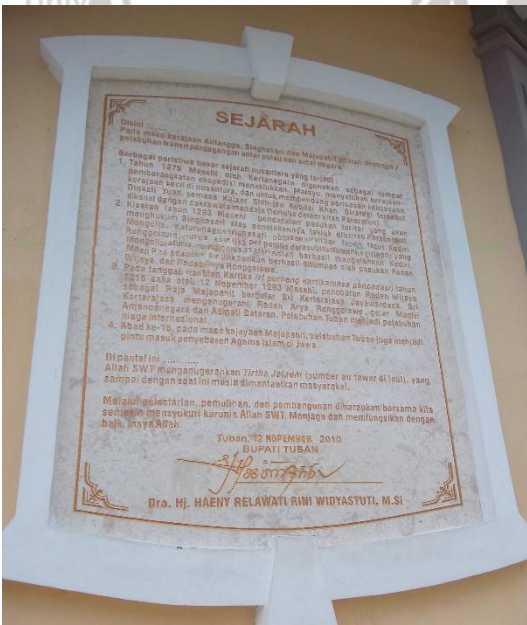 SEJARAH
Disini
Pada masa kerajaan Airlangga, Singhasari dan Majapahit adalah dermaga /
pelabuhan transit perdagangan antar pulau dan antar negara.
Berbagai peristiwa besar sejarah nusantara yang terjadi :
1. Tahun 1275 Masehi oleh Kertanegara digunakan sebagai tempat
pemberangkatan ekspedisi menaklukkan Malayu, menyatukan kerajaan-
kerajaan kecil di nusantara, dan untuk membendung perluasan kekuasaan
Dinasti Yuan semasa Kaizar Shih-tzu Kubilai Khan. Strategi tersebut
dikenal dengan cakrawala mandala (tertulis dalam kitab Pararaton).
2. Kisaran tahun 1293 Masehi pendaratan pasukan tartar yang akan
menghukum Singhasari atas penolakannya takluk dibawah
Mongolia. Raden Wijaya
Ronggolawe
Mongolia berhasil mengalahkan Kediri,
berhasil ditumpas oleh pasukan Raden
Wijaya dan Raden Arya Ronggolawe.
3. Pada tanggal
saka atau 12 Nopember 1293 Masehi, penobatan Raden Wijaya
sebagai Raja Majapahit bergelar Sri Kertarajasa Jayawardana. Sri
Kertarajasa menganugerahi Raden Arya Ronggolawe gelar Mantri
Amancanegara dan Adipati Dataran. Pelabuhan Tuban menjadi pelabuhan
niaga internasional.
4. Abad ke-15, pada masa kejayaan Majapahit, pelabuhan Tuban juga menjadi
pintu masuk penyebaran Agama Islam di Jawa.
Di pantai ini ............
Allah SWT menganugerahkan Tirtha Jaladhi (sumber air tawar di laut), yang
sampai dengan saat ini masih dimanfaatkan masyarakat.
Melalui pelestarian, pemulihan, dan pembangunan diharapkan bersama kita
semakin mensyukuri karunia Allah SWT. Menjaga dan memfungsikan dengan
baik. Insya Allah.
Tuban, 12 NOPEMBER 2010
BUPATI TUBAN
Dra. Hj. HAENY RELAWATI RINI WIDYASTUTI, M.Si